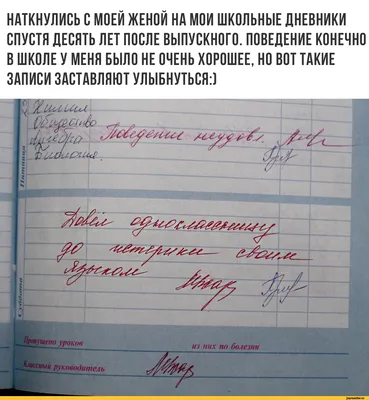 НАТКНУЛИСЬ С МОЕЙ ЖЕНОЙ НА МОИ ШКОЛЬНЫЕ ДНЕВНИКИ
СПУСТЯ ДЕСЯТЬ ЛЕТ ПОСЛЕ ВЫПУСКНОГО. ПОВЕДЕНИЕ КОНЕЧНО
В ШКОЛЕ У МЕНЯ БЫЛО НЕ ОЧЕНЬ ХОРОШЕЕ, НО ВОТ ТАКИЕ
ЗАПИСИ ЗАСТАВЛЯЮТ УЛЫБНУТЬСЯ:)
Химия
Общество
Алгебра
Биология
Поведение неудовл.
Пятница
Довёл одноклассницу
до истерики своим
языком
Суббота
Пропущено уроков
из них по болезни
Классный руководитель